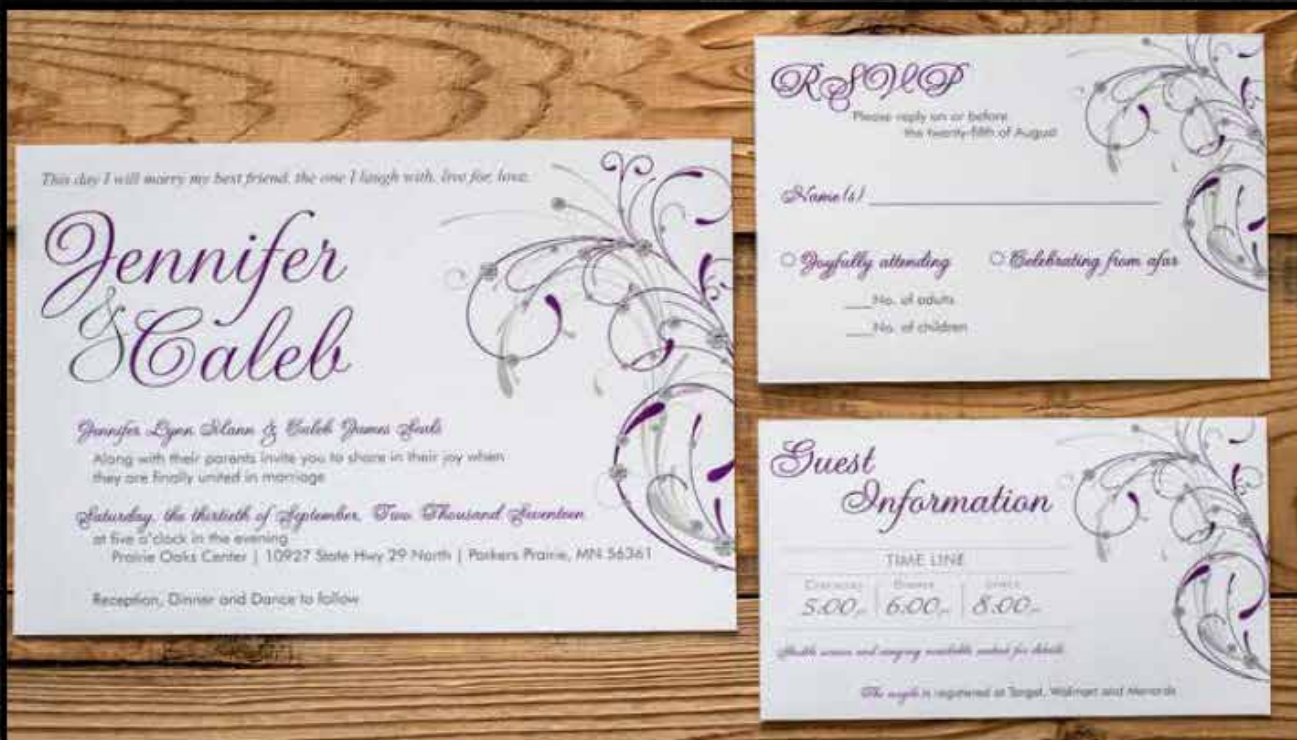 This day I will marry my best friend, the one I laugh with, live for, love.
Jennifer
& Caleb
Jennifer Lynn & Caleb James
Along with their parents invite you to share in their joy when
they are finally united in marriage
Saturday, the thirtieth of September, Two Thousand Seventeen
at five o'clock in the evening
Prairie Oaks Center | 10927 State Hwy 29 North | Parkers Prairie, MN 56361
Reception, Dinner and Dance to follow
RSVP
Please reply on or before
the twenty-fifth of August
Name(s)
Joyfully attending Celebrating from afar
No. of adults
No. of children
Guest
Information
TIME LINE
Ceremony Dinner
5:00 6:00 8:00
and camping available for details
The couple is registered at Target, Walmart and Menards